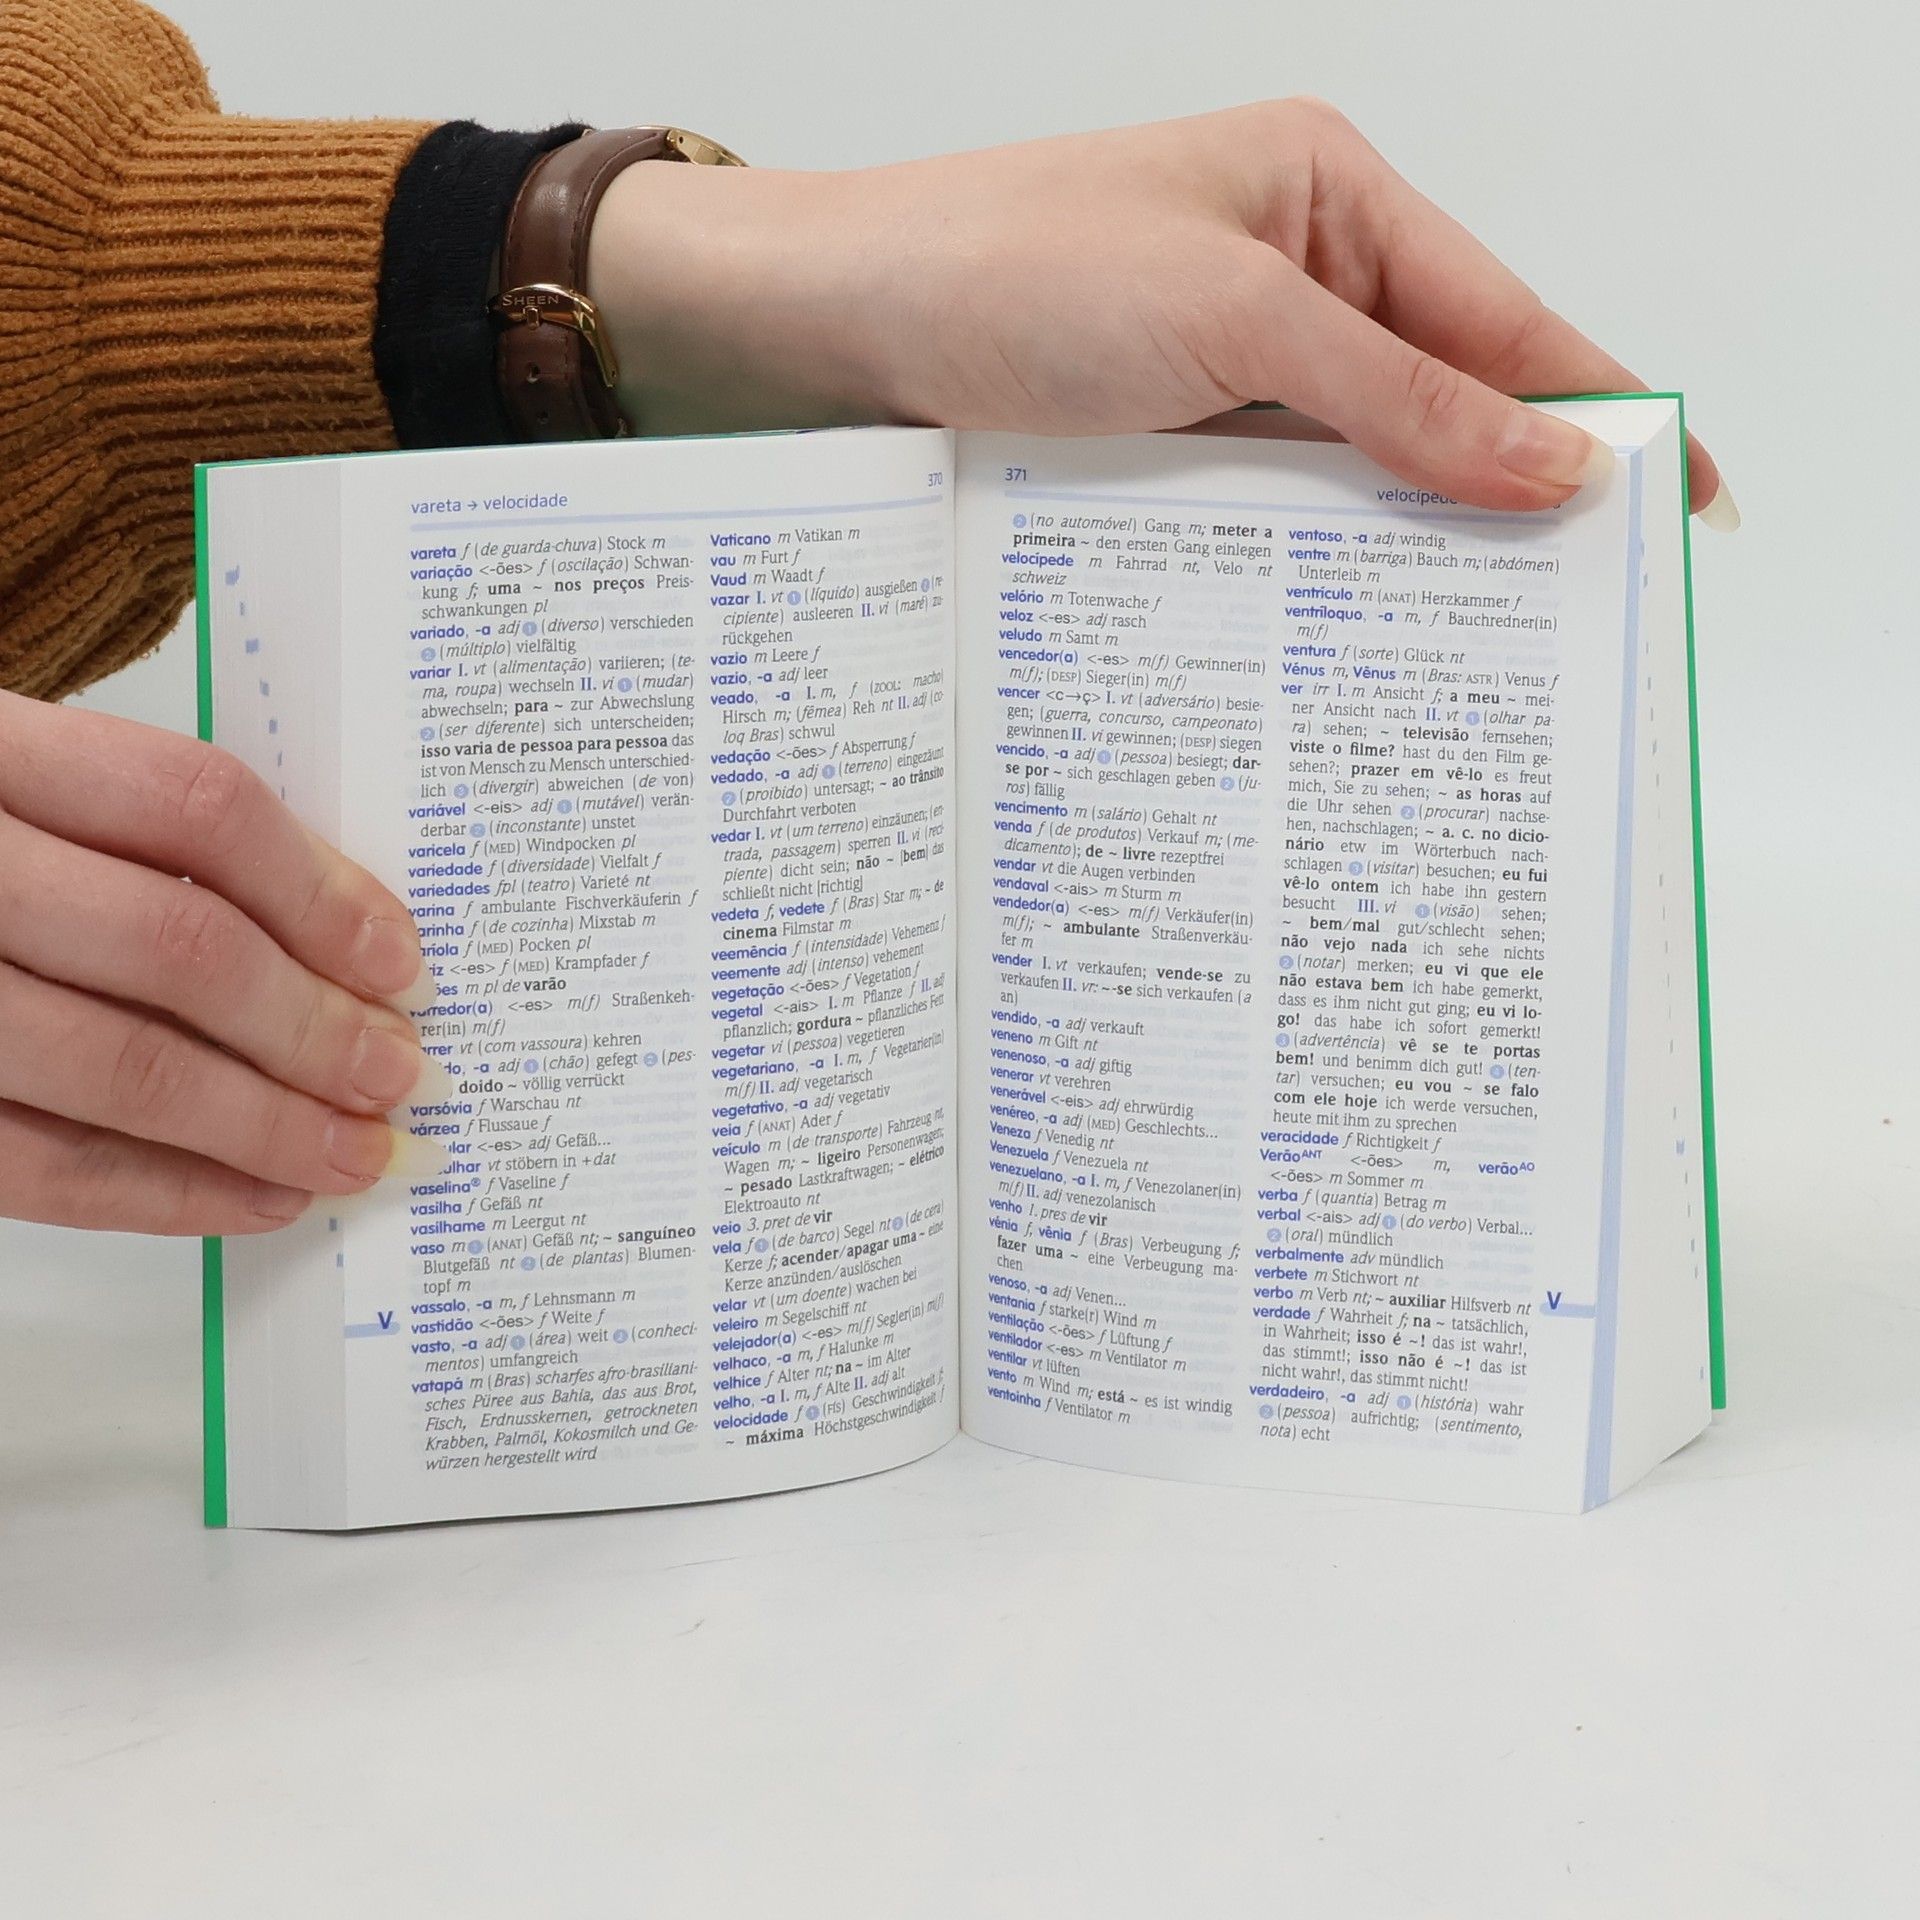 SHEEN
vareta → velocidade
370
vareta f (de guarda-chuva) Stock m
variação <-ões> f (oscilação) Schwan-
kung f; uma ~ nos preços Preis-
schwankungen pl
variado, -a adj 1 (diverso) verschieden
2 (múltiplo) vielfältig
variar I. vt (alimentação) variieren; (te-
ma, roupa) wechseln II. vi 1 (mudar)
abwechseln; para ~ zur Abwechslung
2 (ser diferente) sich unterscheiden;
isso varia de pessoa para pessoa das
ist von Mensch zu Mensch unterschied-
lich 3 (divergir) abweichen (de von)
variável <-eis> adj 1 (mutável) verän-
derbar 2 (inconstante) unstet
varicela f (MED) Windpocken pl
variedade f (diversidade) Vielfalt f
variedades fpl (teatro) Varieté nt
varina f ambulante Fischverkäuferin f
arinha f (de cozinha) Mixstab m
aríola f (MED) Pocken pl
iz <-es> f (MED) Krampfader f
ões m pl de varão
varredor(a) <-es> m(f) Straßenkeh-
rer(in) m(f)
arrer vt (com vassoura) kehren
ido, -a adj 1 (chão) gefegt 2 (pes-
doido ~ völlig verrückt
varsóvia f Warschau nt
várzea f Flussaue f
ular <-es> adj Gefäß...
ulhar vt stöbern in +dat
vaselina® f Vaseline f
vasilha f Gefäß nt
vasilhame m Leergut nt
vaso m 1 (ANAT) Gefäß nt; ~ sanguíneo
Blutgefäß nt 2 (de plantas) Blumen-
topf m
vassalo, -a m, f Lehnsmann m
vastidão <-ões> f Weite f
vasto, -a adj 1 (área) weit 2 (conheci-
mentos) umfangreich
vatapá m (Bras) scharfes afro-brasiliani-
sches Püree aus Bahia, das aus Brot,
Fisch, Erdnusskernen, getrockneten
Krabben, Palmöl, Kokosmilch und Ge-
würzen hergestellt wird
V
Vaticano m Vatikan m
vau m Furt f
Vaud m Waadt f
vazar I. vt 1 (líquido) ausgießen 2 (re-
cipiente) ausleeren II. vi (maré) zu-
rückgehen
vazio m Leere f
vazio, -a adj leer
veado, -a I. m, f (ZOOL: macho)
Hirsch m; (fêmea) Reh nt II. adj (co-
loq Bras) schwul
vedação <-ões> f Absperrung f
vedado, -a adj 1 (terreno) eingezäunt
2 (proibido) untersagt; ~ ao trânsito
Durchfahrt verboten
vedar I. vt (um terreno) einzäunen; (en-
trada, passagem) sperren II. vi (reci-
piente) dicht sein; não ~ [bem] das
schließt nicht [richtig]
vedeta f, vedete f (Bras) Star m; ~ de
cinema Filmstar m
veemência f (intensidade) Vehemenz f
veemente adj (intenso) vehement
vegetação <-ões> f Vegetation f
vegetal <-ais> I. m Pflanze f II. adj
pflanzlich; gordura ~ pflanzliches Fett
vegetar vi (pessoa) vegetieren
vegetariano, -a I. m, f Vegetarier(in)
m(f) II. adj vegetarisch
vegetativo, -a adj vegetativ
veia f (ANAT) Ader f
veículo m (de transporte) Fahrzeug nt,
Wagen m; ~ ligeiro Personenwagen;
~ pesado Lastkraftwagen; ~ elétrico
Elektroauto nt
veio 3. pret de vir
vela f 1 (de barco) Segel nt 2 (de cera)
Kerze f; acender/apagar uma ~ eine
Kerze anzünden/auslöschen
velar vt (um doente) wachen bei
veleiro m Segelschiff nt
velejador(a) <-es> m(f) Segler(in) m(f)
velhaco, -a m, f Halunke m
velhice f Alter nt; na ~ im Alter
velho, -a I. m, f Alte II. adj alt
velocidade f 1 (FÍS) Geschwindigkeit f;
~ máxima Höchstgeschwindigkeit f
371
velocípede
2 (no automóvel) Gang m; meter a
primeira ~ den ersten Gang einlegen
velocípede m Fahrrad nt, Velo nt
schweiz
velório m Totenwache f
veloz <-es> adj rasch
veludo m Samt m
vencedor(a) <-es> m(f) Gewinner(in)
m(f); (DESP) Sieger(in) m(f)
vencer <c→ç> I. vt (adversário) besie-
gen; (guerra, concurso, campeonato)
gewinnen II. vi gewinnen; (DESP) siegen
vencido, -a adj 1 (pessoa) besiegt; dar-
se por ~ sich geschlagen geben 2 (ju-
ros) fällig
vencimento m (salário) Gehalt nt
venda f (de produtos) Verkauf m; (me-
dicamento); de ~ livre rezeptfrei
vendar vt die Augen verbinden
vendaval <-ais> m Sturm m
vendedor(a) <-es> m(f) Verkäufer(in)
m(f); ~ ambulante Straßenverkäu-
fer m
vender I. vt verkaufen; vende-se zu
verkaufen II. vr: ~-se sich verkaufen (a
an)
vendido, -a adj verkauft
veneno m Gift nt
venenoso, -a adj giftig
venerar vt verehren
venerável <-eis> adj ehrwürdig
venéreo, -a adj (MED) Geschlechts...
Veneza f Venedig nt
Venezuela f Venezuela nt
venezuelano, -a I. m, f Venezolaner(in)
m(f) II. adj venezolanisch
venho 1. pres de vir
vénia f, vênia f (Bras) Verbeugung f;
fazer uma ~ eine Verbeugung ma-
chen
venoso, -a adj Venen...
ventania f starke(r) Wind m
ventilação <-ões> f Lüftung f
ventilador <-es> m Ventilator m
ventilar vt lüften
vento m Wind m; está ~ es ist windig
ventoinha f Ventilator m
ventoso, -a adj windig
ventre m (barriga) Bauch m; (abdómen)
Unterleib m
ventrículo m (ANAT) Herzkammer f
ventríloquo, -a m, f Bauchredner(in)
m(f)
ventura f (sorte) Glück nt
Vénus m, Vênus m (Bras: ASTR) Venus f
ver irr I. m Ansicht f; a meu ~ mei-
ner Ansicht nach II. vt 1 (olhar pa-
ra) sehen; ~ televisão fernsehen;
viste o filme? hast du den Film ge-
sehen?; prazer em vê-lo es freut
mich, Sie zu sehen; ~ as horas auf
die Uhr sehen 2 (procurar) nachse-
hen, nachschlagen; ~ a. c. no dicio-
nário etw im Wörterbuch nach-
schlagen 3 (visitar) besuchen; eu fui
vê-lo ontem ich habe ihn gestern
besucht III. vi 1 (visão) sehen;
~ bem/mal gut/schlecht sehen;
não vejo nada ich sehe nichts
2 (notar) merken; eu vi que ele
não estava bem ich habe gemerkt,
dass es ihm nicht gut ging; eu vi lo-
go! das habe ich sofort gemerkt!
3 (advertência) vê se te portas
bem! und benimm dich gut! 4 (ten-
tar) versuchen; eu vou ~ se falo
com ele hoje ich werde versuchen,
heute mit ihm zu sprechen
veracidade f Richtigkeit f
Verão ANT <-ões> m, verão AO
<-ões> m Sommer m
verba f (quantia) Betrag m
verbal <-ais> adj 1 (do verbo) Verbal...
2 (oral) mündlich
verbalmente adv mündlich
verbete m Stichwort nt
verbo m Verb nt; ~ auxiliar Hilfsverb nt
verdade f Wahrheit f; na ~ tatsächlich,
in Wahrheit; isso é ~! das ist wahr!,
das stimmt!; isso não é ~! das ist
nicht wahr!, das stimmt nicht!
verdadeiro, -a adj 1 (história) wahr
2 (pessoa) aufrichtig; (sentimento,
nota) echt
V